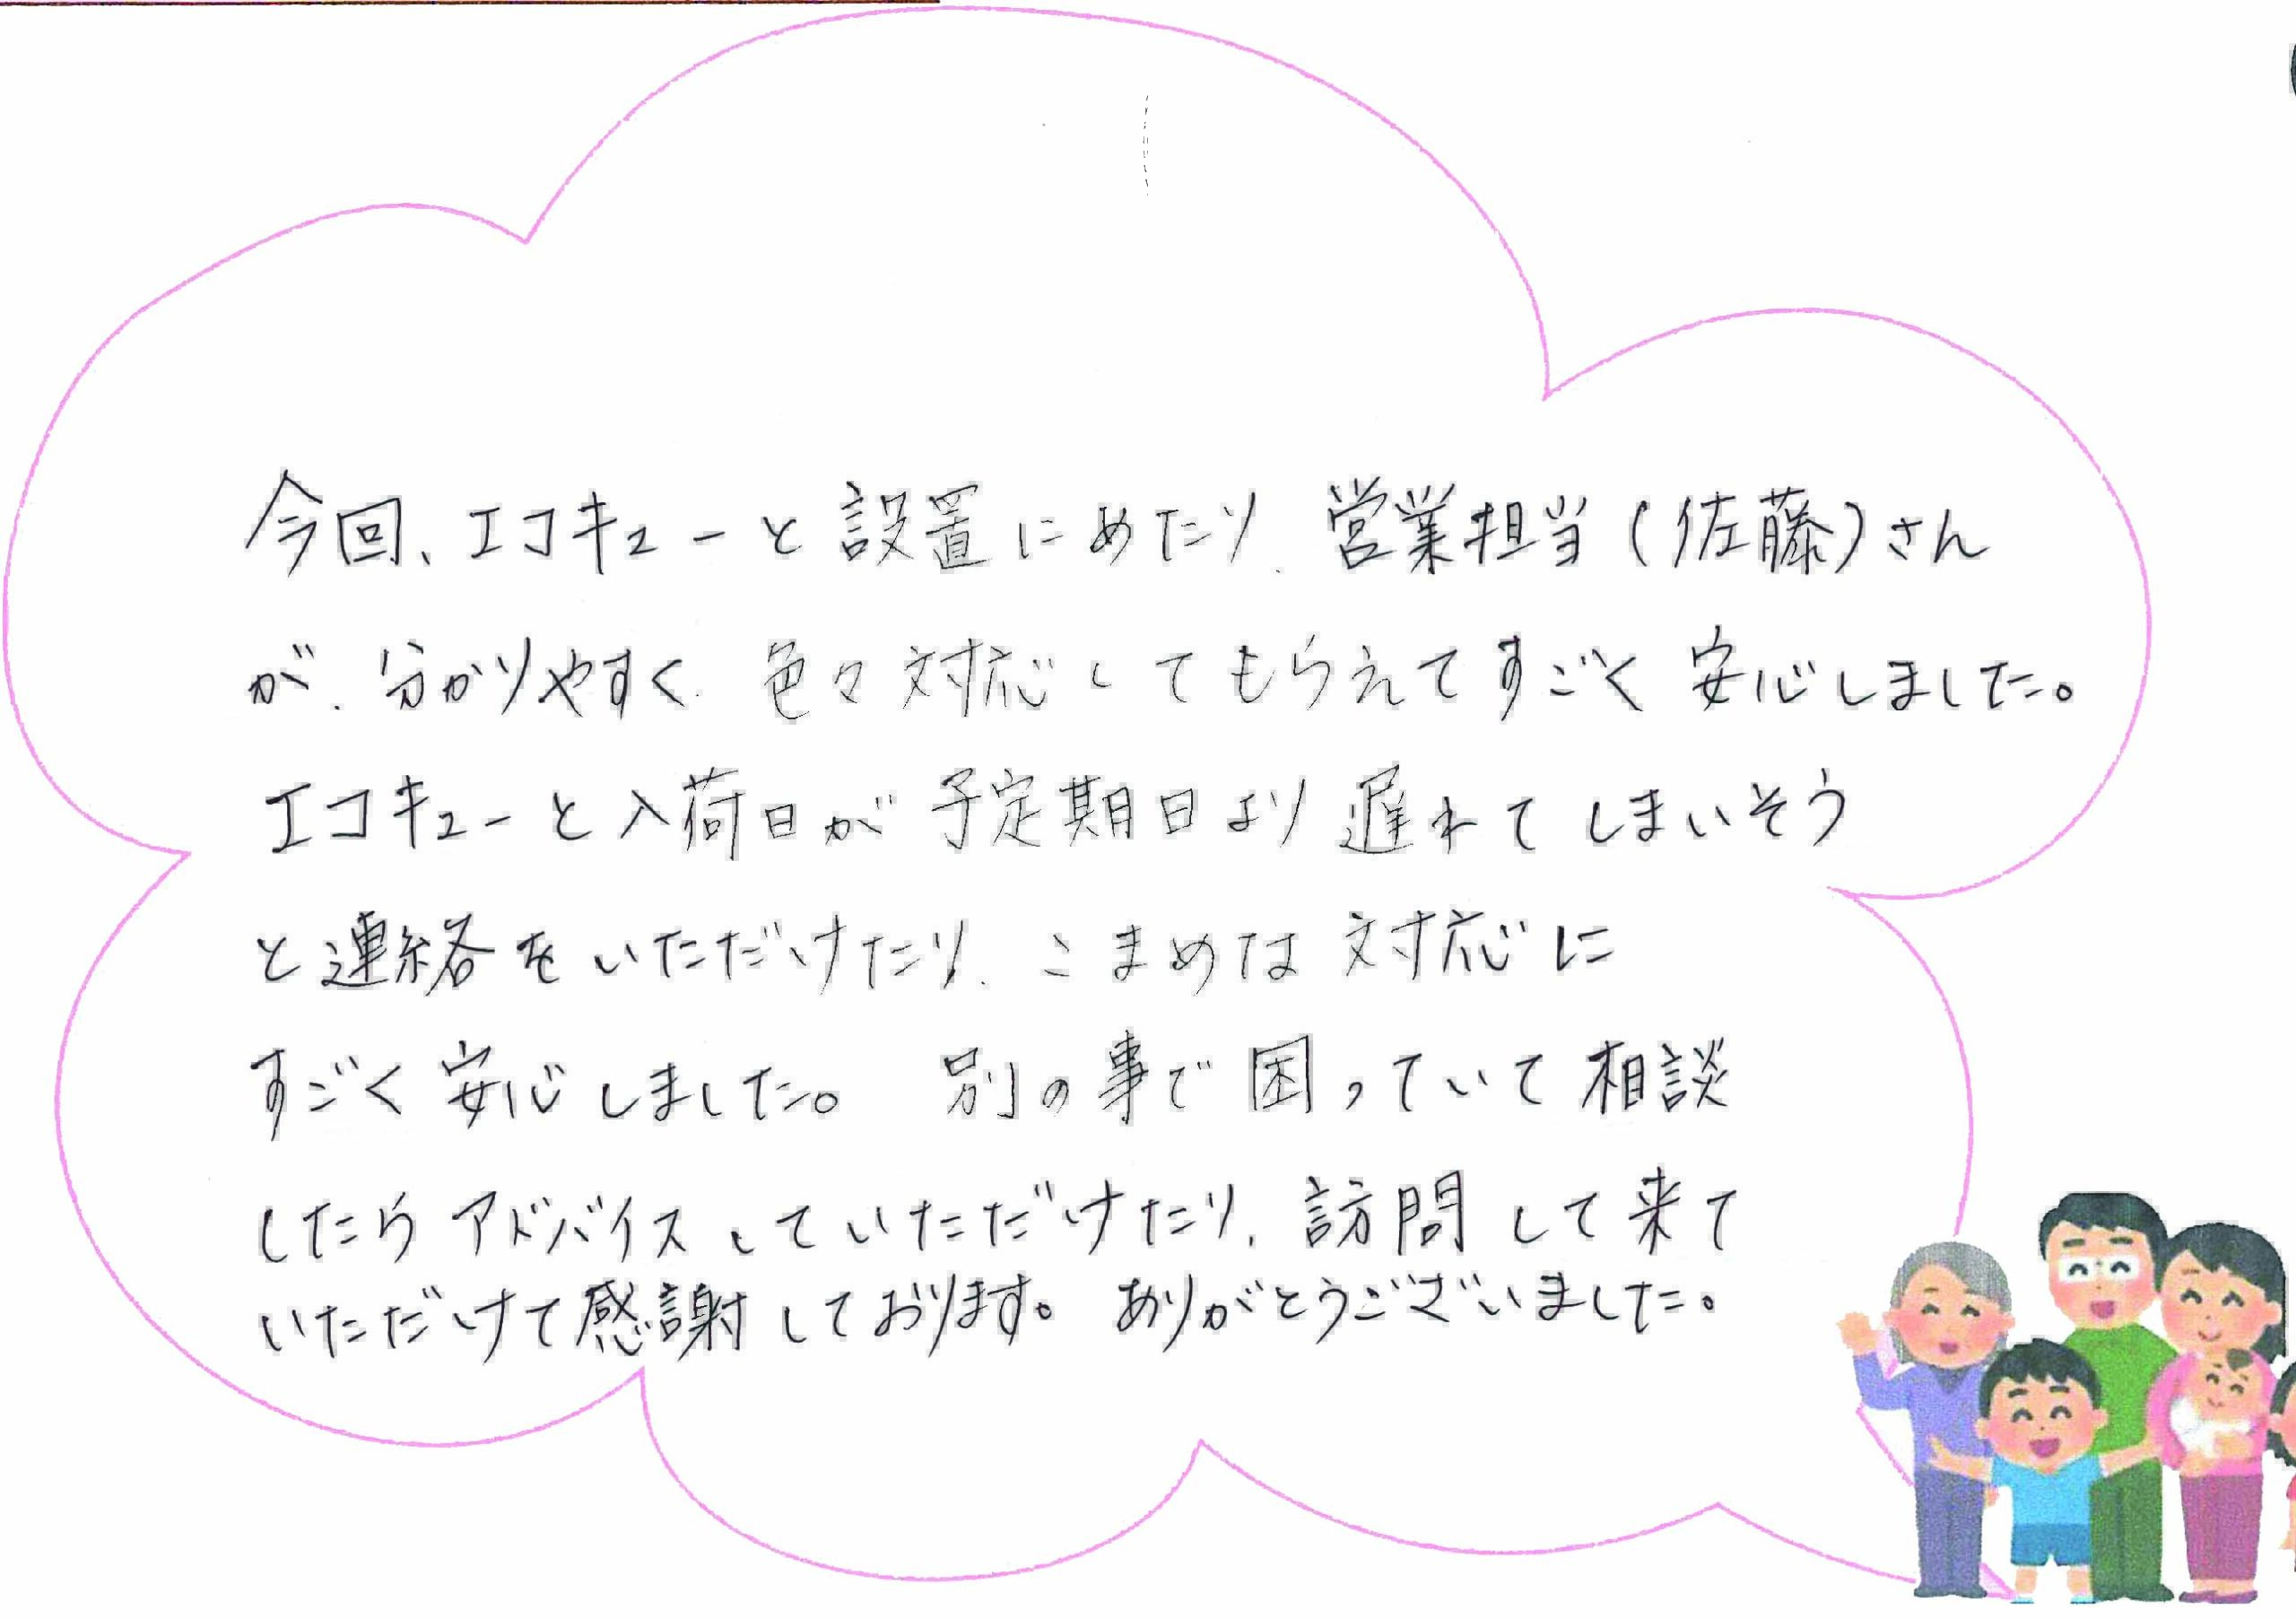 今回、エコキューと設置にめたり、営業担当(佐藤)さん
が、分かりやすく、色々対応してもらえてすごく安心しました。
エコキューと入荷日が予定期日より遅れてしまいそう
と連絡をいただけたり、こまめな対応に
すごく安心しました。 別の事で困っていて相談
したらアドバイスしていただけたり、訪問して来て
いただけて感謝しております。 ありがとうございました。